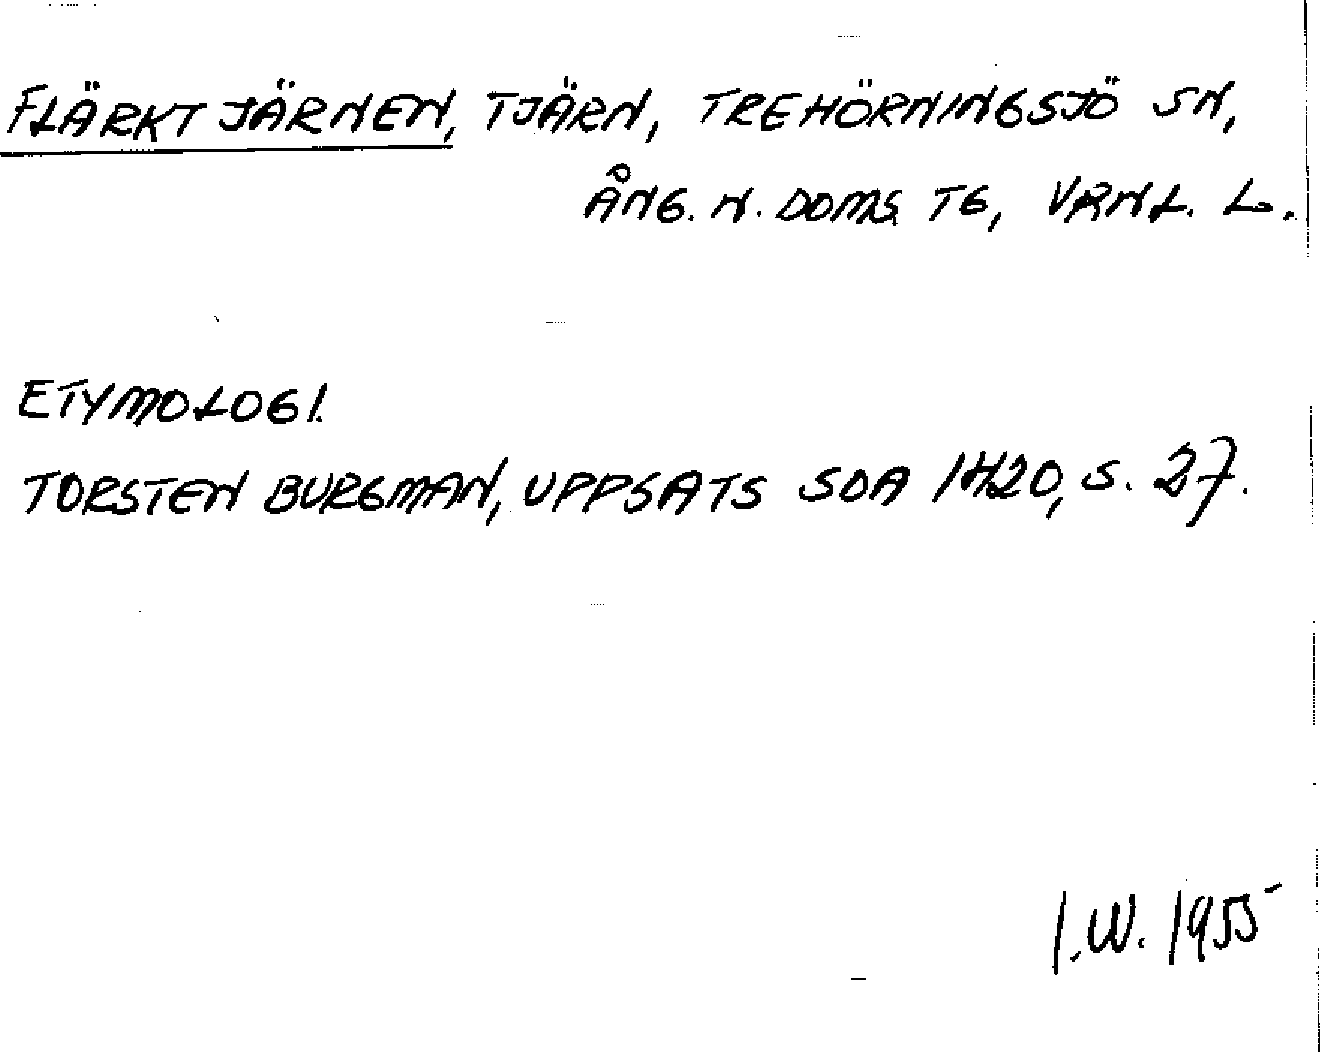 FLÄRKTJÄRNEN, TJÄRN, TREHÖRNINGSJÖ SN,
ÅNG. N. DOMS. TG, VRNL. L.
ETYMOLOGI.
TORSTEN BURGMAN, UPPSATS SOA 1420, S. 27.
I.W. 1955